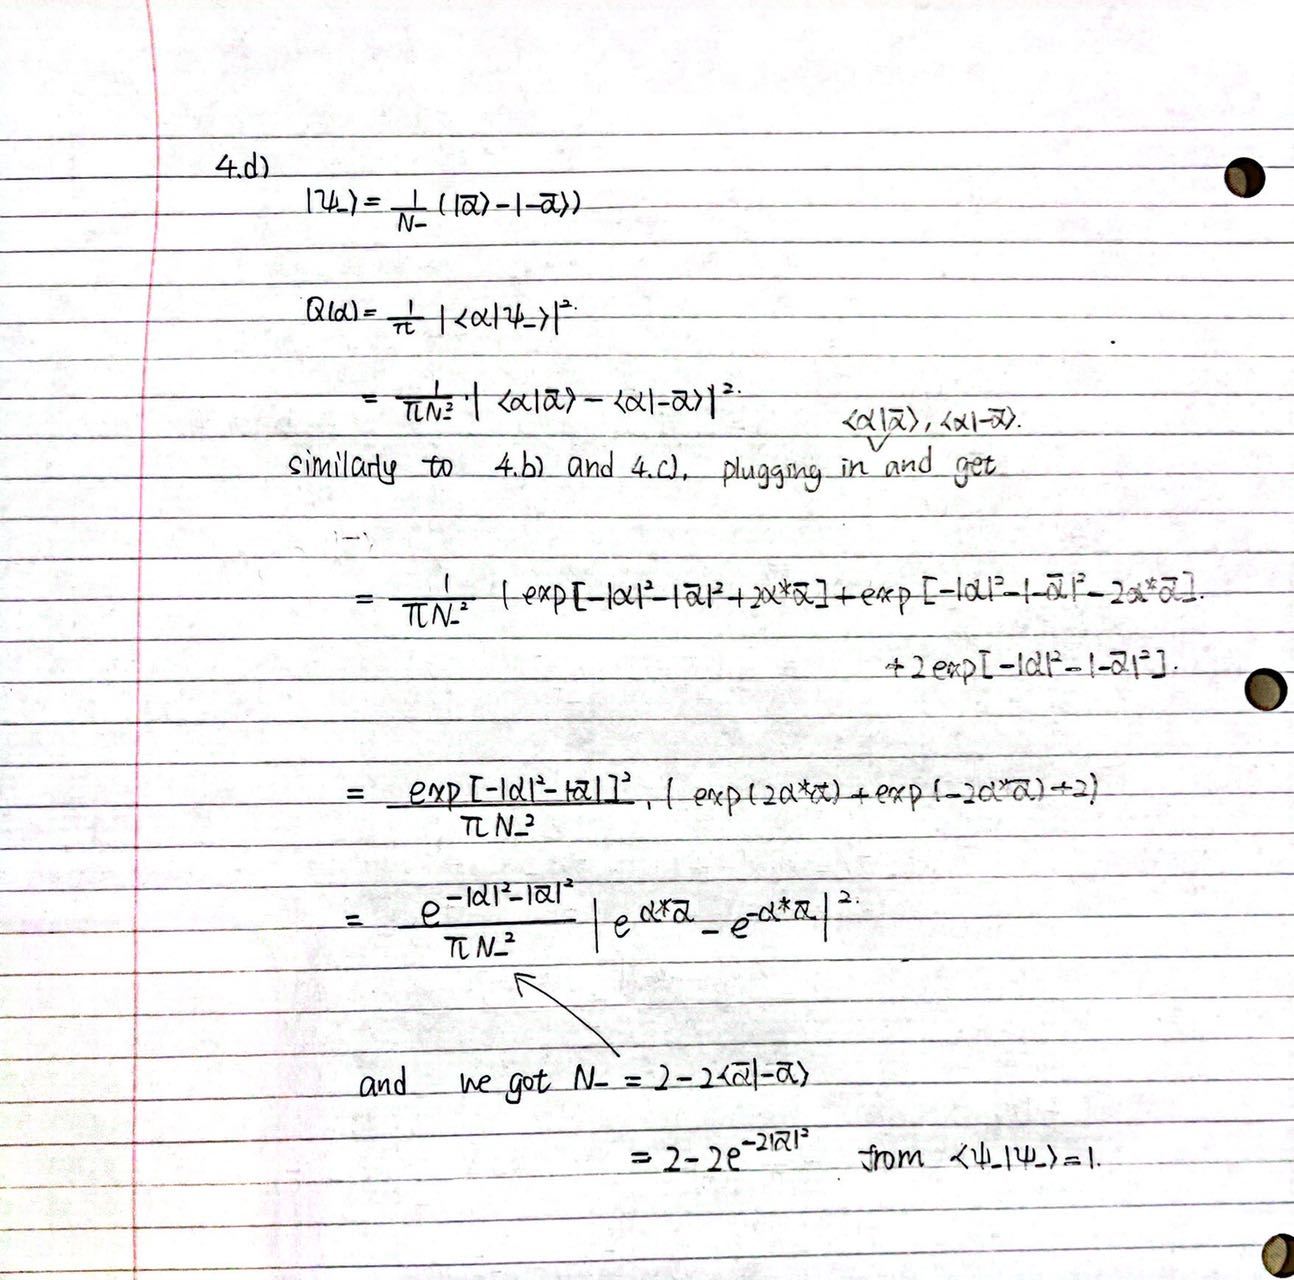 4.d)
|ψ₋⟩ = 1/N₋ (|ᾱ⟩ - |-ᾱ⟩)
Q(α) = 1/π |⟨α|ψ₋⟩|².
= 1/(πN₋²) · |⟨α|ᾱ⟩ - ⟨α|-ᾱ⟩|².
⟨α|ᾱ⟩, ⟨α|-ᾱ⟩.
similarly to 4.b) and 4.c), plugging in ∨ and get
= 1/(πN₋²) ( exp[-|α|²-|ᾱ|²+2α*ᾱ] + exp[-|α|²-|-ᾱ|²-2α*ᾱ].
+ 2exp[-|α|²-|-ᾱ|²].
= exp[-|α|²-|ᾱ|]²/(πN₋²) · ( exp(2α*ᾱ) + exp(-2α*ᾱ) + 2)
= e^(-|α|²-|ᾱ|²)/(πN₋²) |e^(α*ᾱ) - e^(-α*ᾱ)|².
and we got N₋ = 2-2⟨ᾱ|-ᾱ⟩
= 2-2e^(-2|ᾱ|²) from ⟨ψ₋|ψ₋⟩=1.